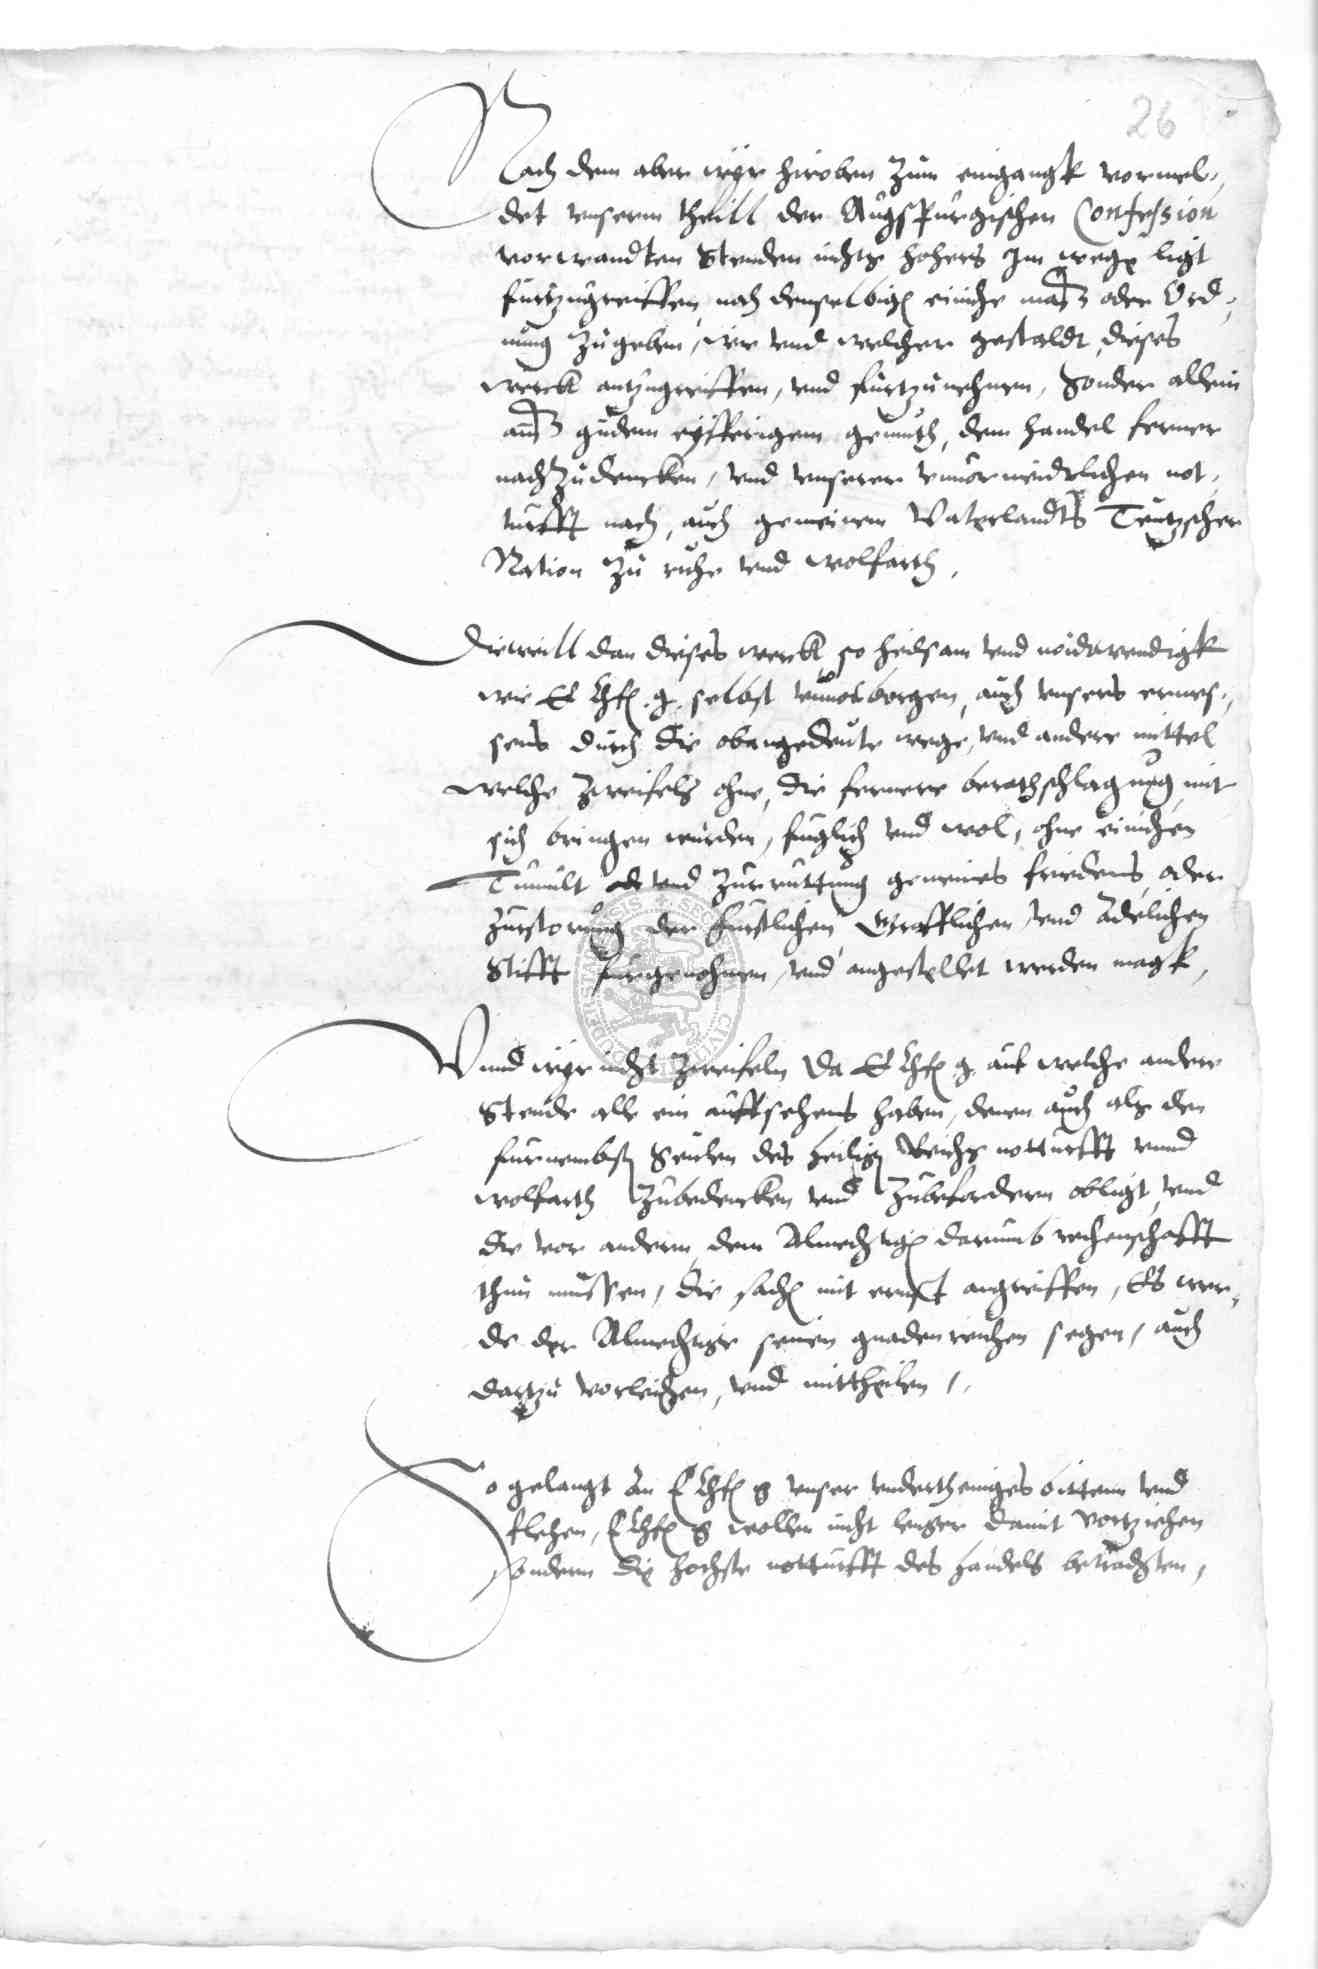 26
Nach dem aber wyr hieoben zum eingangk vormel-
det unserm theill der Augspurgischen Confession
vorwandten Stenden nichts hohers Im wege ligt
furtzugreiffen, noch denselbigen einiche mass oder Ord-
nung zugeben, wie und welcher gestaldt, dieses
werck antzugreiffen, und furtzunehmen, Sonder allein
auss gudem eyfferigem gemuth, dem handel ferner
nachzudencken, und unserer unvormeidelichen not-
turfft nach, auch gemeinem Vaterlandts Teutzscher
Nation zu ruhe und wolfarth,
Dieweill dan dieses werck, so heilsam und noidwendigk
wie E Chf. g. selbst unvorborgen, auch unsers ermes-
sens durch die obangedeute wege, und andere mittel
welche zweifels ohne, die fernere berathschlagung mit
sich bringen wurden, fuglich und wol, ohne einichen
Tumult und zurruttung gemeines friedens, oder
zurstorung der furstlichen, Grafflichen und Adelichen
Stifft furgenohmen, und angestellet werden magk,
Unnd wyr nicht zweifeln da E Chf. g. auf welche andere
Stende alle ein auffsehens haben, denen auch als den
furnembsten Seulen des heiligen Reichs notturfft unnd
wolfarth zubedencken und zubefordern obligt, und
die vor andern, dem Almechtigen darumb rechenschafft
thun mussen, die sachen mit ernst angreiffen, Es wer-
de der Almechtige seinen gnadenreichen segen, auch
dartzu vorleihen, und mittheilen,
So gelangt An E Chf. g unser undertheniges bittenn und
flehen, E Chf. g wollen nicht lenger damit vortziehen
sondern die hochste notturfft des handels betrachten,